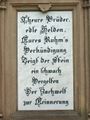 Theure Brüder,
edle Helden.
Eures Ruhm's
Verkündigung
Zeigt der Stein
ein schwach
Vergelten
Der Nachwelt
zur Erinnerung